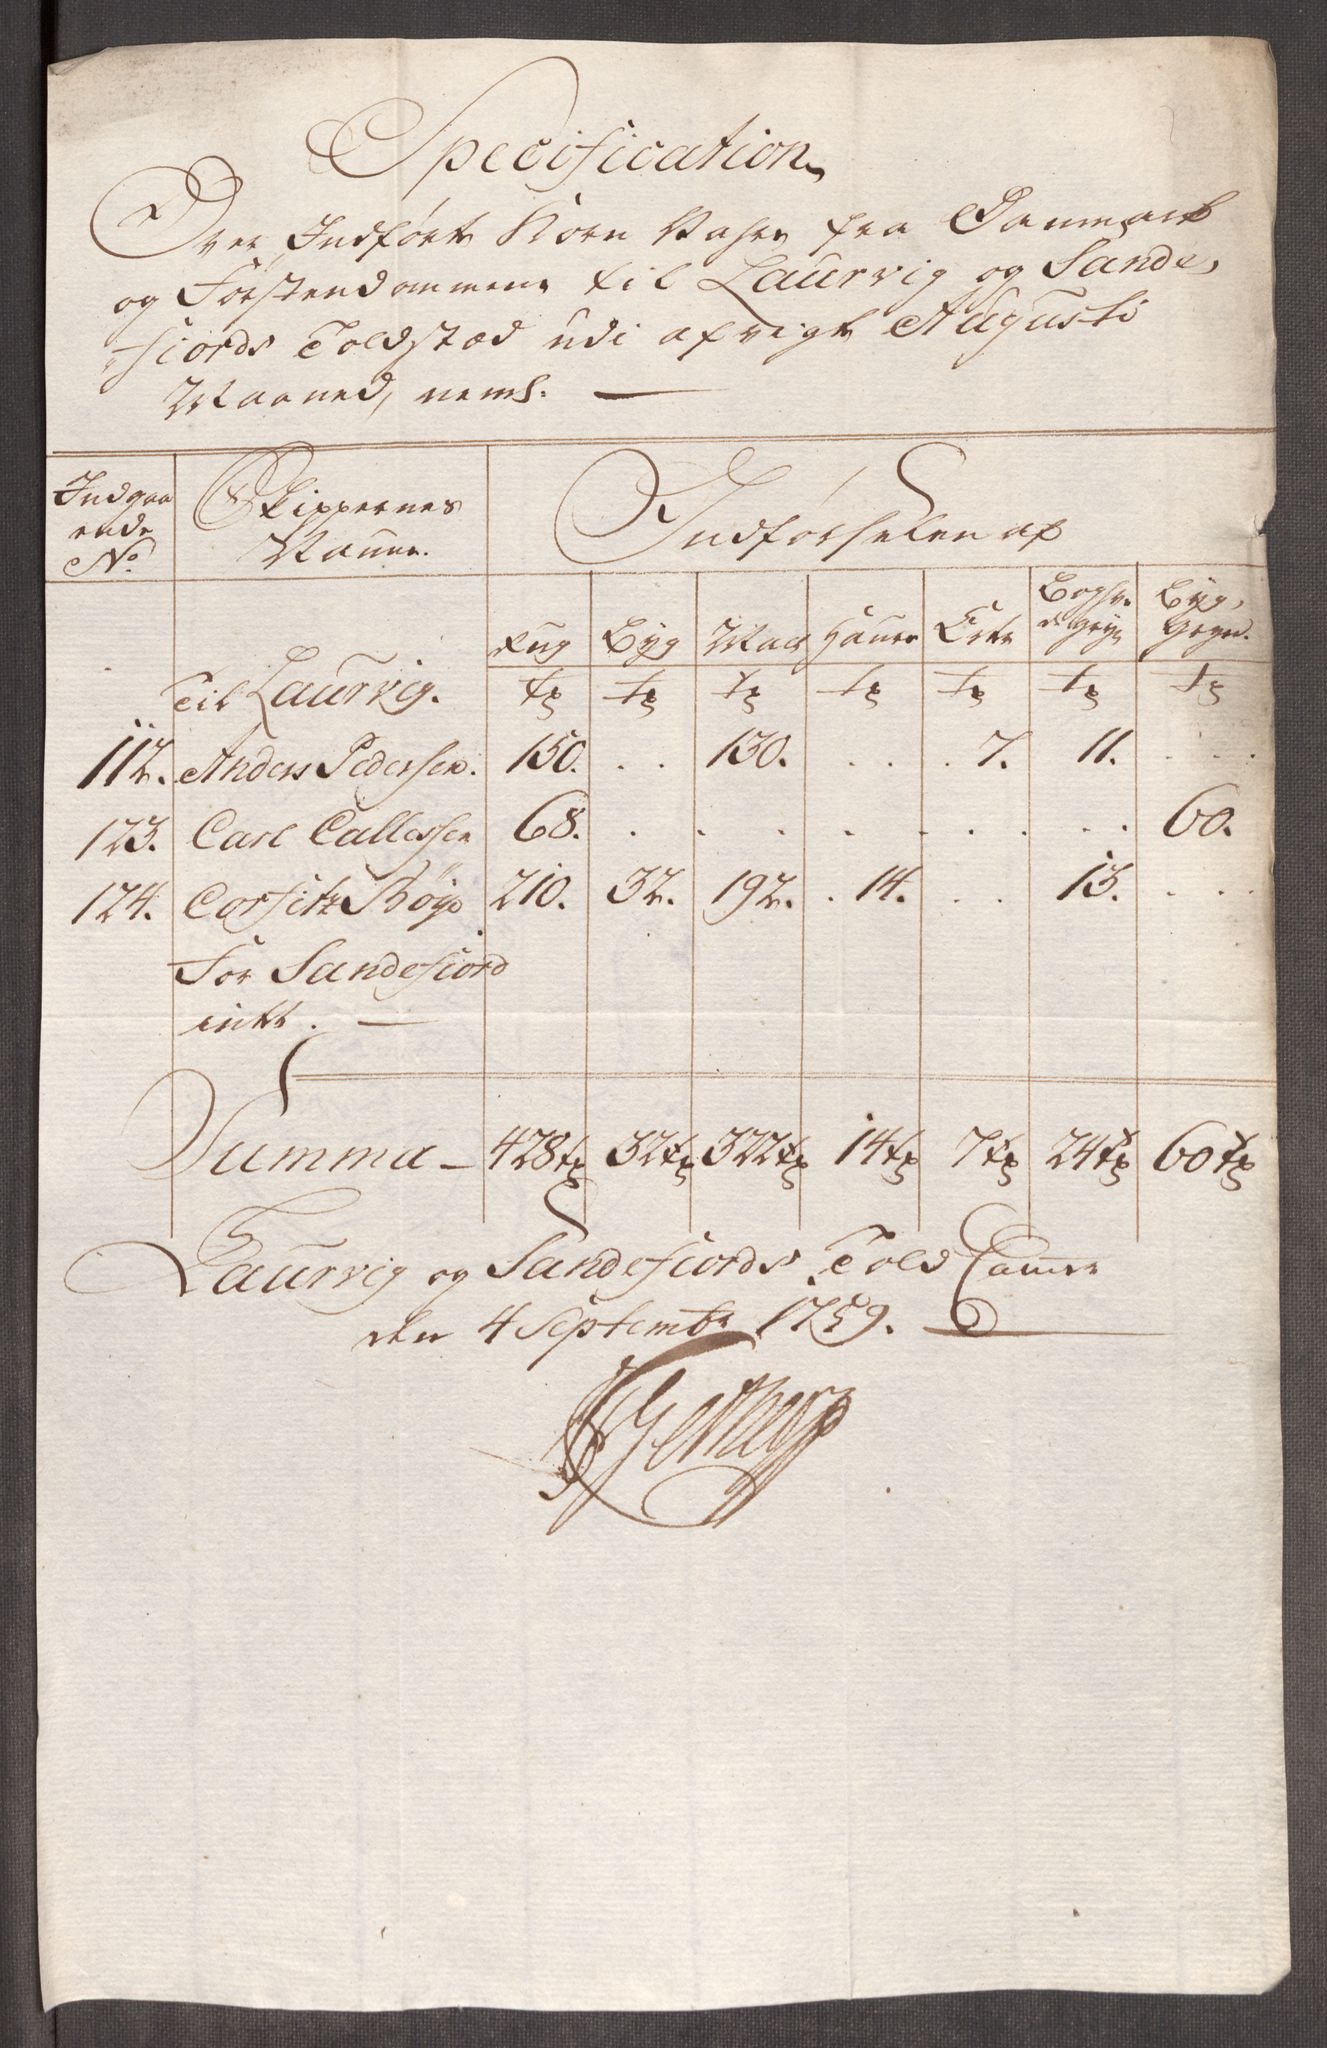 Specification
Over Indført Korn Vahre fra Danmark
og Förstendommene til Laurvig og Sande-
fiords Toldstæd udi afvigte Augusti
Maaned, neml. —
Indgaa Skippernes Indførselen af
ende Naune.
No
Rug Byg Malt Haure Erter Boghve Byg-
de Gryn Gryn.
Til Laurvig. tr tr tr tr tr tr tr
112. Anders Pedersen. 150. . . 130. . . . 7. 11. . . .
123. Carl Callessen 68. . . . . . . . . 60.
124. Corfitz Böye 210. 32. 192. . 14. . . 13. . . .
For Sandefiord
intet. —
Summa — 428 tr 32 tr 322 tr 14 tr 7 tr 24 tr 60 tr
Laurvig og Sandefiords Told Camer
den 4 Septembr 1759. —